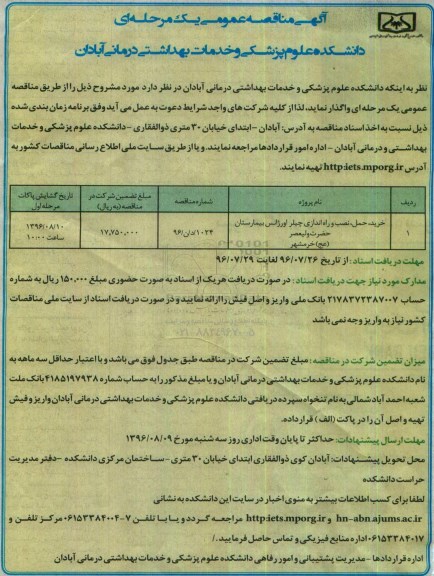 آگهی مناقصه عمومی یک مرحله ای
دانشکده علوم پزشکی و خدمات بهداشتی درمانی آبادان
نظر به اینکه دانشکده علوم پزشکی و خدمات بهداشتی درمانی آبادان در نظر دارد مورد مشروح ذیل را از طریق مناقصه
عمومی یک مرحله ای واگذار نماید، لذا از کلیه شرکت های واجد شرایط دعوت به عمل می آید وفق برنامه زمان بندی شده
ذیل نسبت به اخذ اسناد مناقصه به آدرس: آبادان - ابتدای خیابان ۳۰ متری ذوالفقاری - دانشکده علوم پزشکی و خدمات
بهداشتی و درمانی آبادان - اداره امور قراردادها مراجعه نمایند. و یا از طریق سایت ملی اطلاع رسانی مناقصات کشور به
آدرس http:iets.mporg.ir تهیه نمایند.
ردیف	نام پروژه	شماره مناقصه	مبلغ تضمین شرکت در مناقصه (به ریال)	تاریخ گشایش پاکات مرحله اول
۱	خرید، حمل، نصب و راه اندازی چیلر اورژانس بیمارستان حضرت ولیعصر (عج) خرمشهر	۱۰۲۴/دان/۹۶	۱۷,۷۵۰,۰۰۰	۱۳۹۶/۰۸/۱۰ ساعت ۱۰:۰۰
مهلت دریافت اسناد: از تاریخ ۹۶/۰۷/۲۶ لغایت ۹۶/۰۷/۲۹
مدارک مورد نیاز جهت دریافت اسناد: در صورت دریافت هر یک از اسناد به صورت حضوری مبلغ ۱۵۰,۰۰۰ ریال به شماره
حساب ۲۱۷۸۳۷۲۳۸۷۰۰۷ بانک ملی واریز و اصل فیش را ارائه نمایید و در صورت دریافت اسناد از سایت ملی مناقصات
کشور نیاز به واریز وجه نمی باشد
میزان تضمین شرکت در مناقصه: مبلغ تضمین شرکت در مناقصه طبق جدول فوق می باشد و با اعتبار حداقل سه ماهه به
نام دانشکده علوم پزشکی و خدمات بهداشتی درمانی آبادان و یا مبلغ مذکور را به حساب شماره ۴۱۸۵۱۹۷۹۳۸ بانک ملت
شعبه احمد آباد شمالی به نام تنخواه سپرده دریافتی دانشکده علوم پزشکی و خدمات بهداشتی درمانی آبادان واریز و فیش
تهیه و اصل آن را در پاکت (الف) قرار داده.
مهلت ارسال پیشنهادات: حداکثر تا پایان وقت اداری روز سه شنبه مورخ ۱۳۹۶/۰۸/۰۹
محل تحویل پیشنهادات: آبادان کوی ذوالفقاری ابتدای خیابان ۳۰ متری - ساختمان مرکزی دانشکده - دفتر مدیریت
حراست دانشکده
لطفا برای کسب اطلاعات بیشتر به منوی اخبار در سایت این دانشکده به نشانی
hn-abn.ajums.ac.ir و http:iets.mporg.ir مراجعه گردد و یا با تلفن ۷-۰۶۱۵۳۳۸۴۰۰۴ مرکز تلفن و
۰۶۱۵۳۳۸۴۰۱۷ اداره منابع فیزیکی و تماس حاصل فرمایید./
اداره قراردادها - مدیریت پشتیبانی و امور رفاهی دانشکده علوم پزشکی و خدمات بهداشتی درمانی آبادان